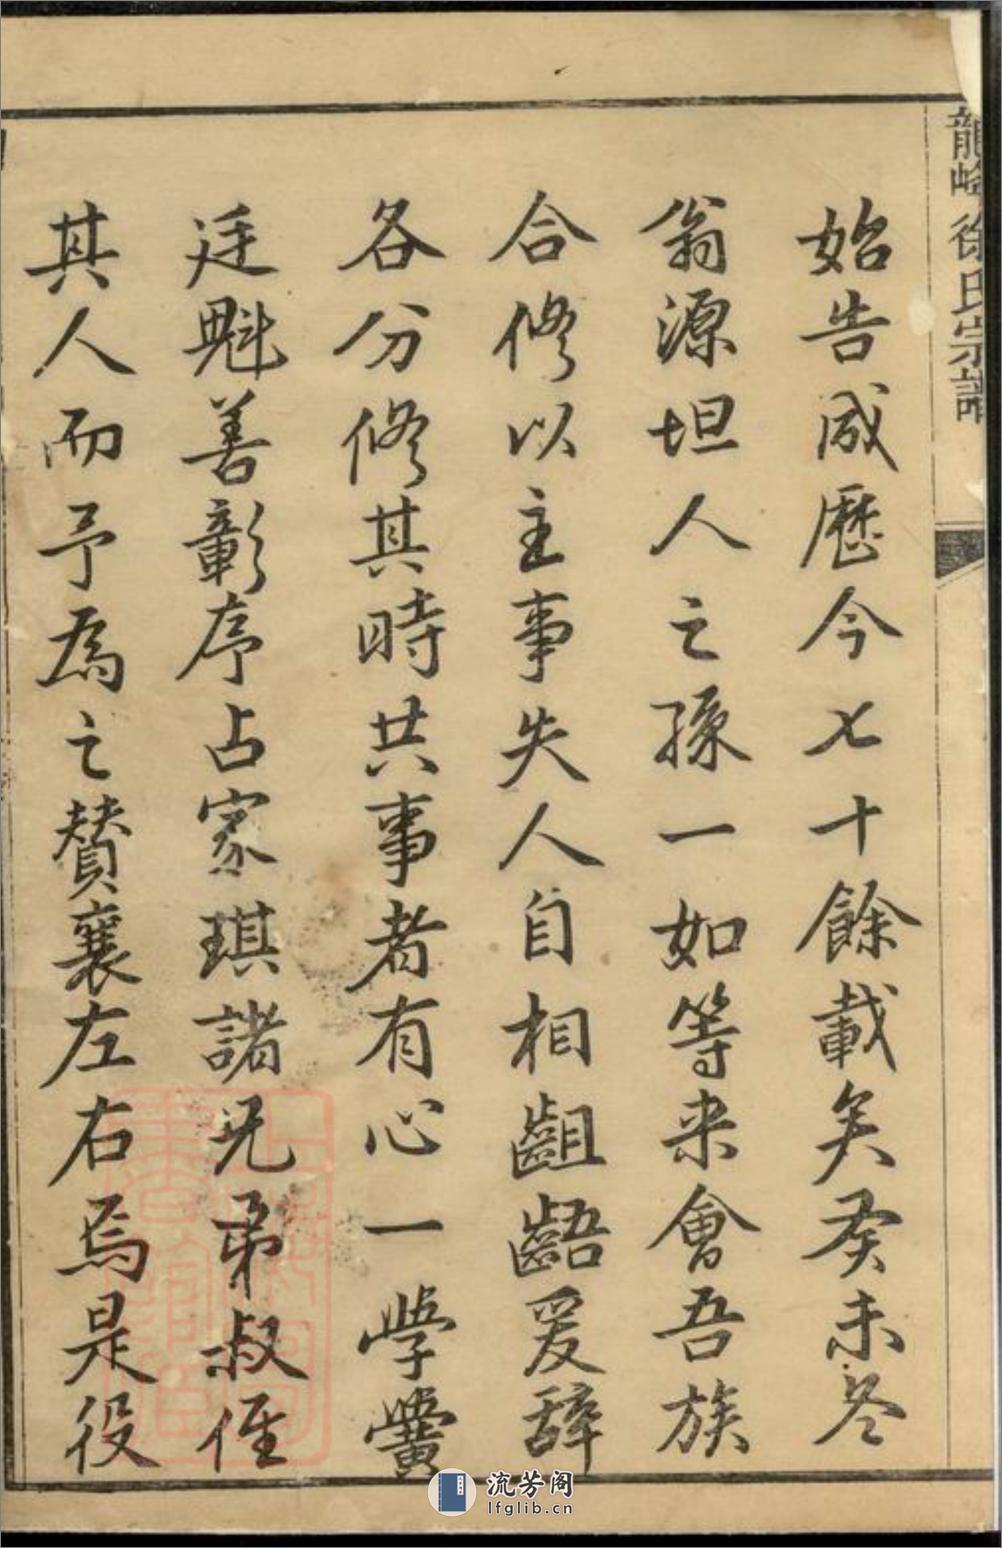 龍峰徐氏宗譜
始告成歷今七十餘載矣癸未冬
翁源坦人之孫一如等來會吾族
合修以主事失人自相齟齬爰辭
各分修其時共事者有心一學黌
廷魁善彰序占家琪諸兄弟叔侄
其人而予為之贊襄左右焉是役
流芳阁
lfglib.cn